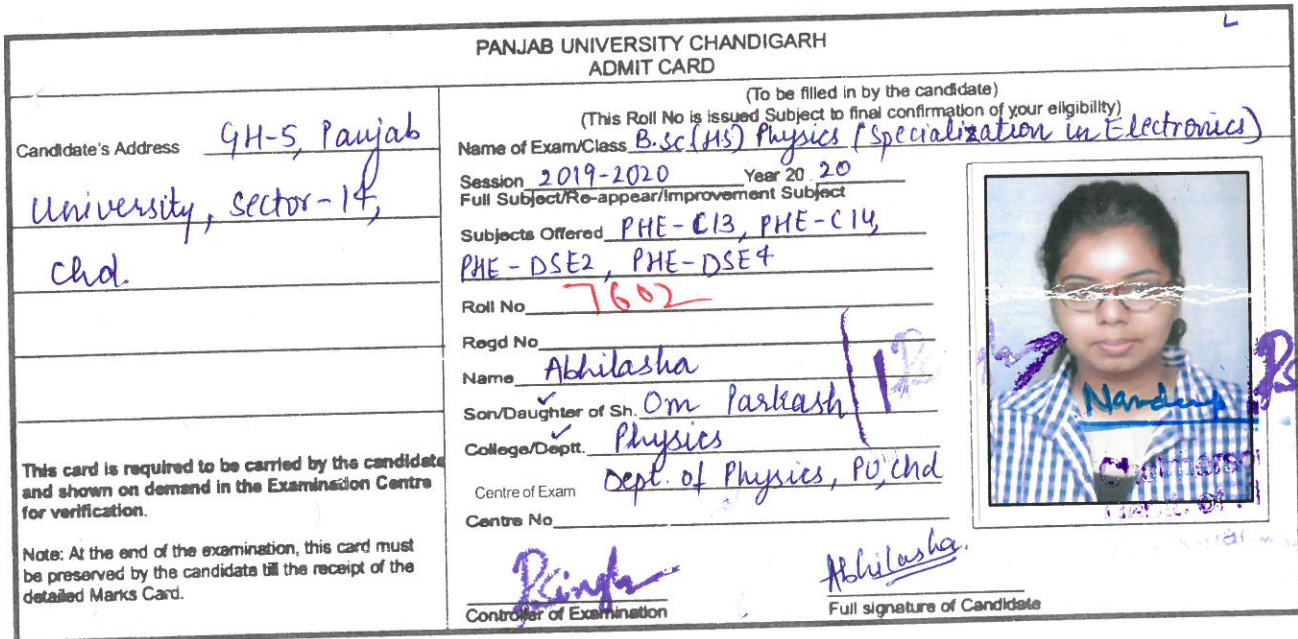 PANJAB UNIVERSITY CHANDIGARH
ADMIT CARD
Candidate's Address GH-5, Panjab
University, Sector-14,
Chd.
This card is required to be carried by the candidate
and shown on demand in the Examination Centre
for verification.
Note: At the end of the examination, this card must
be preserved by the candidate till the receipt of the
detailed Marks Card.
(To be filled in by the candidate)
(This Roll No is issued Subject to final confirmation of your eligibility)
Name of Exam/Class B.Sc (HS) Physics (Specialization in Electronics)
Session 2019-2020 Year 20 20
Full Subject/Re-appear/Improvement Subject
Subjects Offered PHE-C13, PHE-C14,
PHE-DSE2, PHE-DSE4
Roll No 7602
Regd No
Name Abhilasha
Son/Daughter of Sh. Om Parkash
College/Deptt. Physics
Centre of Exam Dept. of Physics, PU, Chd
Centre No
Controller of Examination
Abhilasha.
Full signature of Candidate